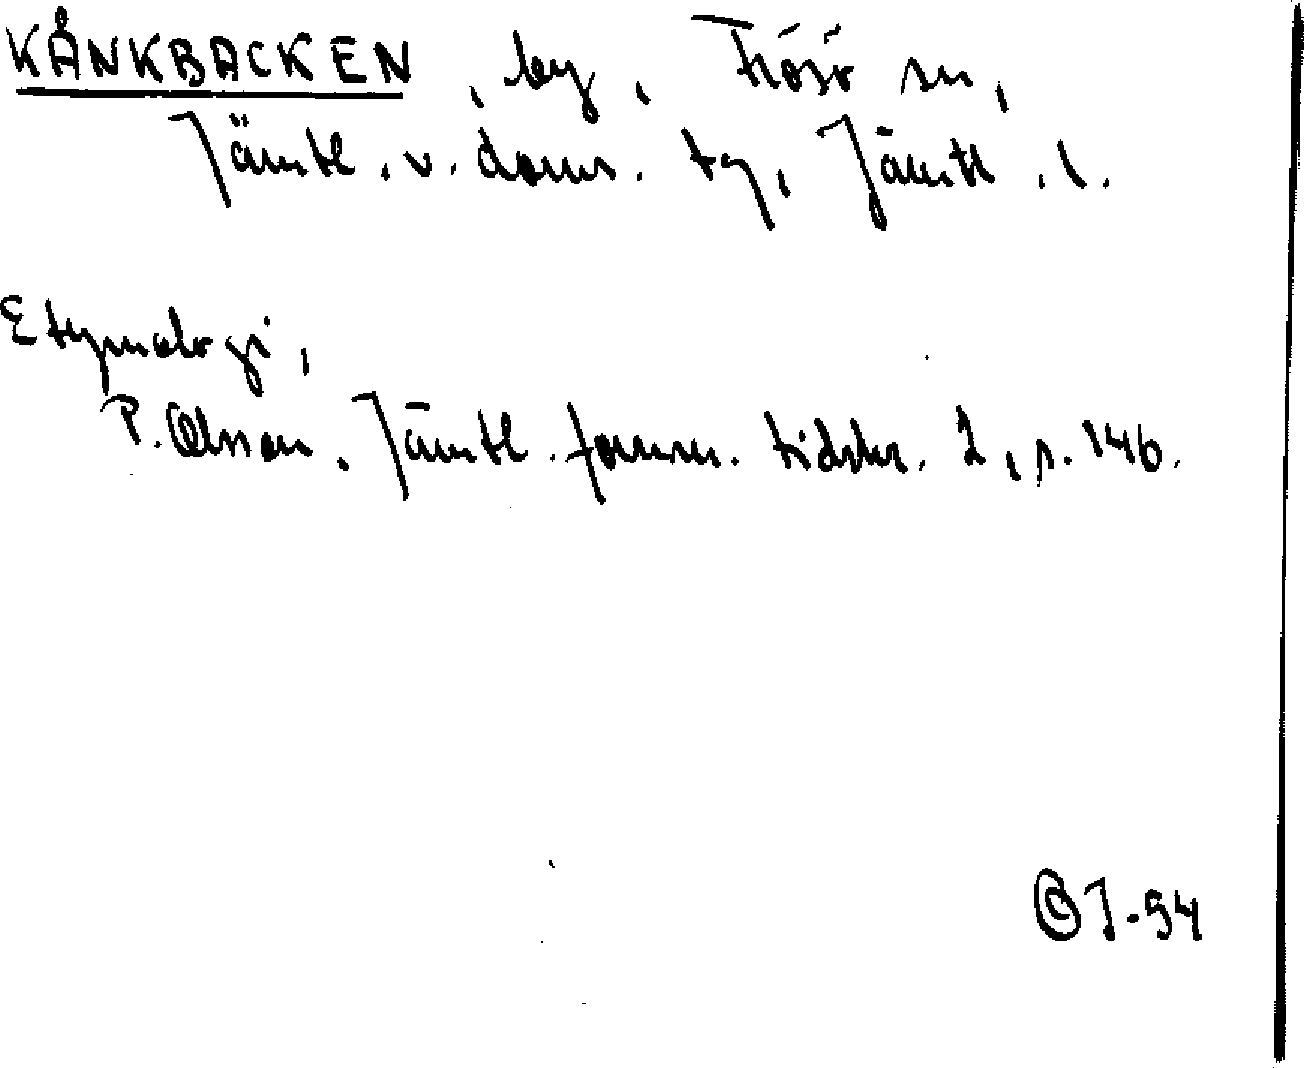 KÅNKBACKEN, by, Frösö sn,
Jämtl. v. doms. tg, Jämtl. l.
Etymologi,
P. Olsson. Jämtl. fornm. tidskr. 2, s. 146.
J-54